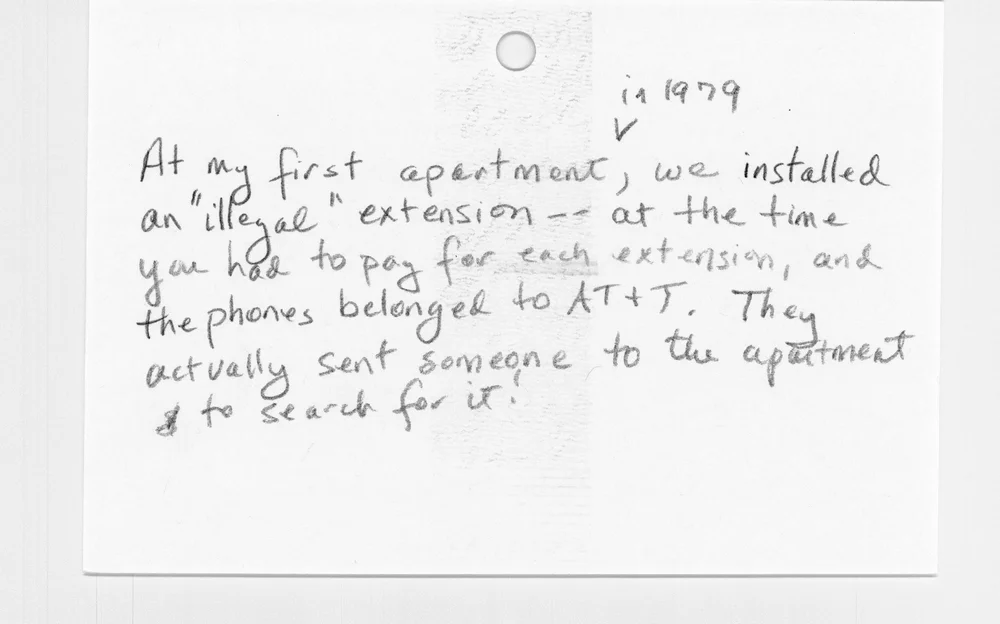 in 1979
At my first apartment, we installed
an "illegal" extension -- at the time
you had to pay for each extension, and
the phones belonged to AT+T. They
actually sent someone to the apartment
to search for it!